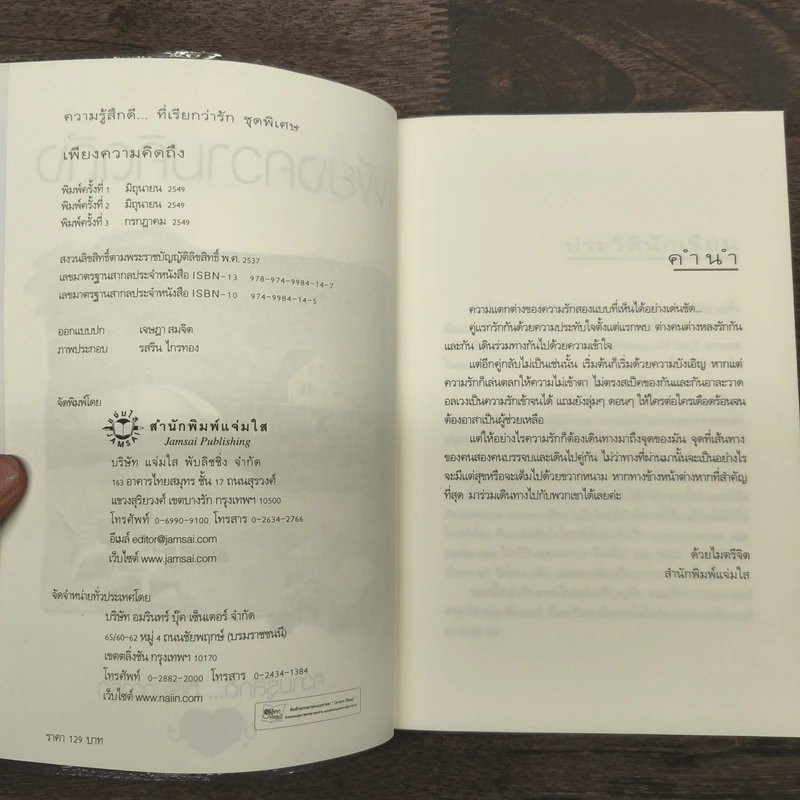 ความรู้สึกดี... ที่เรียกว่ารัก ชุดพิเศษ
เพียงความคิดถึง
พิมพ์ครั้งที่ 1 มิถุนายน 2549
พิมพ์ครั้งที่ 2 มิถุนายน 2549
พิมพ์ครั้งที่ 3 กรกฎาคม 2549
สงวนลิขสิทธิ์ตามพระราชบัญญัติลิขสิทธิ์ พ.ศ. 2537
เลขมาตรฐานสากลประจำหนังสือ ISBN-13 978-974-9984-14-7
เลขมาตรฐานสากลประจำหนังสือ ISBN-10 974-9984-14-5
ออกแบบปก เจษฎา สมจิต
ภาพประกอบ รสริน ไกรทอง
จัดพิมพ์โดย
แจ่มใส
JAMSAI
สำนักพิมพ์แจ่มใส
Jamsai Publishing
บริษัท แจ่มใส พับลิชชิ่ง จำกัด
163 อาคารไทยสมุทร ชั้น 17 ถนนสุรวงศ์
แขวงสุริยวงศ์ เขตบางรัก กรุงเทพฯ 10500
โทรศัพท์ 0-6990-9100 โทรสาร 0-2634-2766
อีเมล์ editor@jamsai.com
เว็บไซต์ www.jamsai.com
จัดจำหน่ายทั่วประเทศโดย
บริษัท อมรินทร์ บุ๊ค เซ็นเตอร์ จำกัด
65/60-62 หมู่ 4 ถนนชัยพฤกษ์ (บรมราชชนนี)
เขตตลิ่งชัน กรุงเทพฯ 10170
โทรศัพท์ 0-2882-2000 โทรสาร 0-2434-1384
เว็บไซต์ www.naiin.com
ราคา 129 บาท
คำนำ
ความแตกต่างของความรักสองแบบที่เห็นได้อย่างเด่นชัด...
คู่แรกรักกันด้วยความประทับใจตั้งแต่แรกพบ ต่างคนต่างหลงรักกัน
และกัน เดินร่วมทางกันไปด้วยความเข้าใจ
แต่อีกคู่กลับไม่เป็นเช่นนั้น เริ่มต้นก็เริ่มด้วยความบังเอิญ หากแต่
ความรักก็เล่นตลกให้ความไม่เข้าตา ไม่ตรงสเป็คของกันและกันอาละวาด
อลเวงเป็นความรักเข้าจนได้ แถมยังลุ่มๆ ดอนๆ ให้ใครต่อใครเดือดร้อนจน
ต้องอาสาเป็นผู้ช่วยเหลือ
แต่ให้อย่างไรความรักก็ต้องเดินทางมาถึงจุดของมัน จุดที่เส้นทาง
ของคนสองคนบรรจบและเดินไปคู่กัน ไม่ว่าทางที่ผ่านมานั้นจะเป็นอย่างไร
จะมีแต่สุขหรือจะเต็มไปด้วยขวากหนาม หากทางข้างหน้าต่างหากที่สำคัญ
ที่สุด มาร่วมเดินทางไปกับพวกเขาได้เลยค่ะ
ด้วยไมตรีจิต
สำนักพิมพ์แจ่มใส